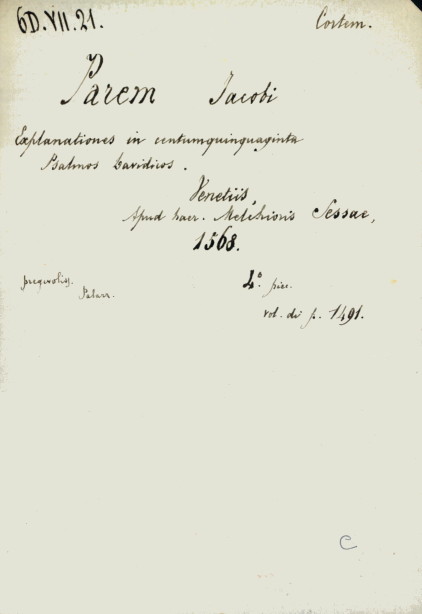 6D.VII.21.
Cortem.
Parem Jacobi
Explanationes in centumquinquaginta
Psalmos Davidicos.
Venetiis,
Apud haer. Melchioris Sessae,
1568.
4.° picc.
vol. di p. 1491.
C